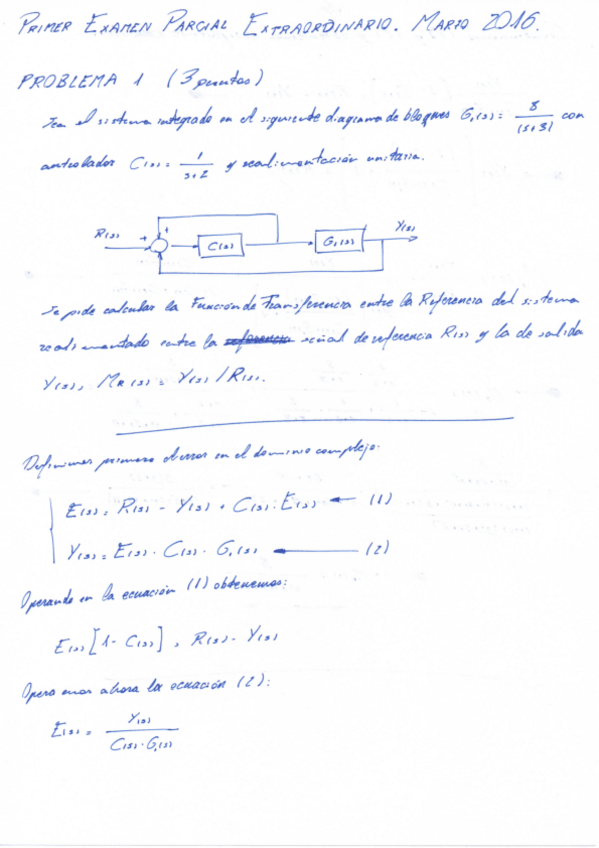 PRIMER EXAMEN PARCIAL EXTRAORDINARIO. MARZO 2016.
PROBLEMA 1 (3 puntos)
Sea el sistema integrado en el siguiente diagrama de bloques G₁(s) = 8/(s+3) con
controlador C(s) = 1/(s+2) y realimentación unitaria.
R(s) + + C(s) G₁(s) Y(s)
-
Se pide calcular la Función de Transferencia entre la Referencia del sistema
realimentado entre la señal de referencia R(s) y la de salida
Y(s), M_R(s) = Y(s)/R(s).
Definimos primero el error en el dominio complejo:
E(s) = R(s) - Y(s) + C(s)·E(s) ← (1)
Y(s) = E(s)·C(s)·G₁(s) ← (2)
Operando en la ecuación (1) obtenemos:
E(s)[1-C(s)] = R(s) - Y(s)
Operamos ahora la ecuación (2):
E(s) = Y(s)/(C(s)·G₁(s))